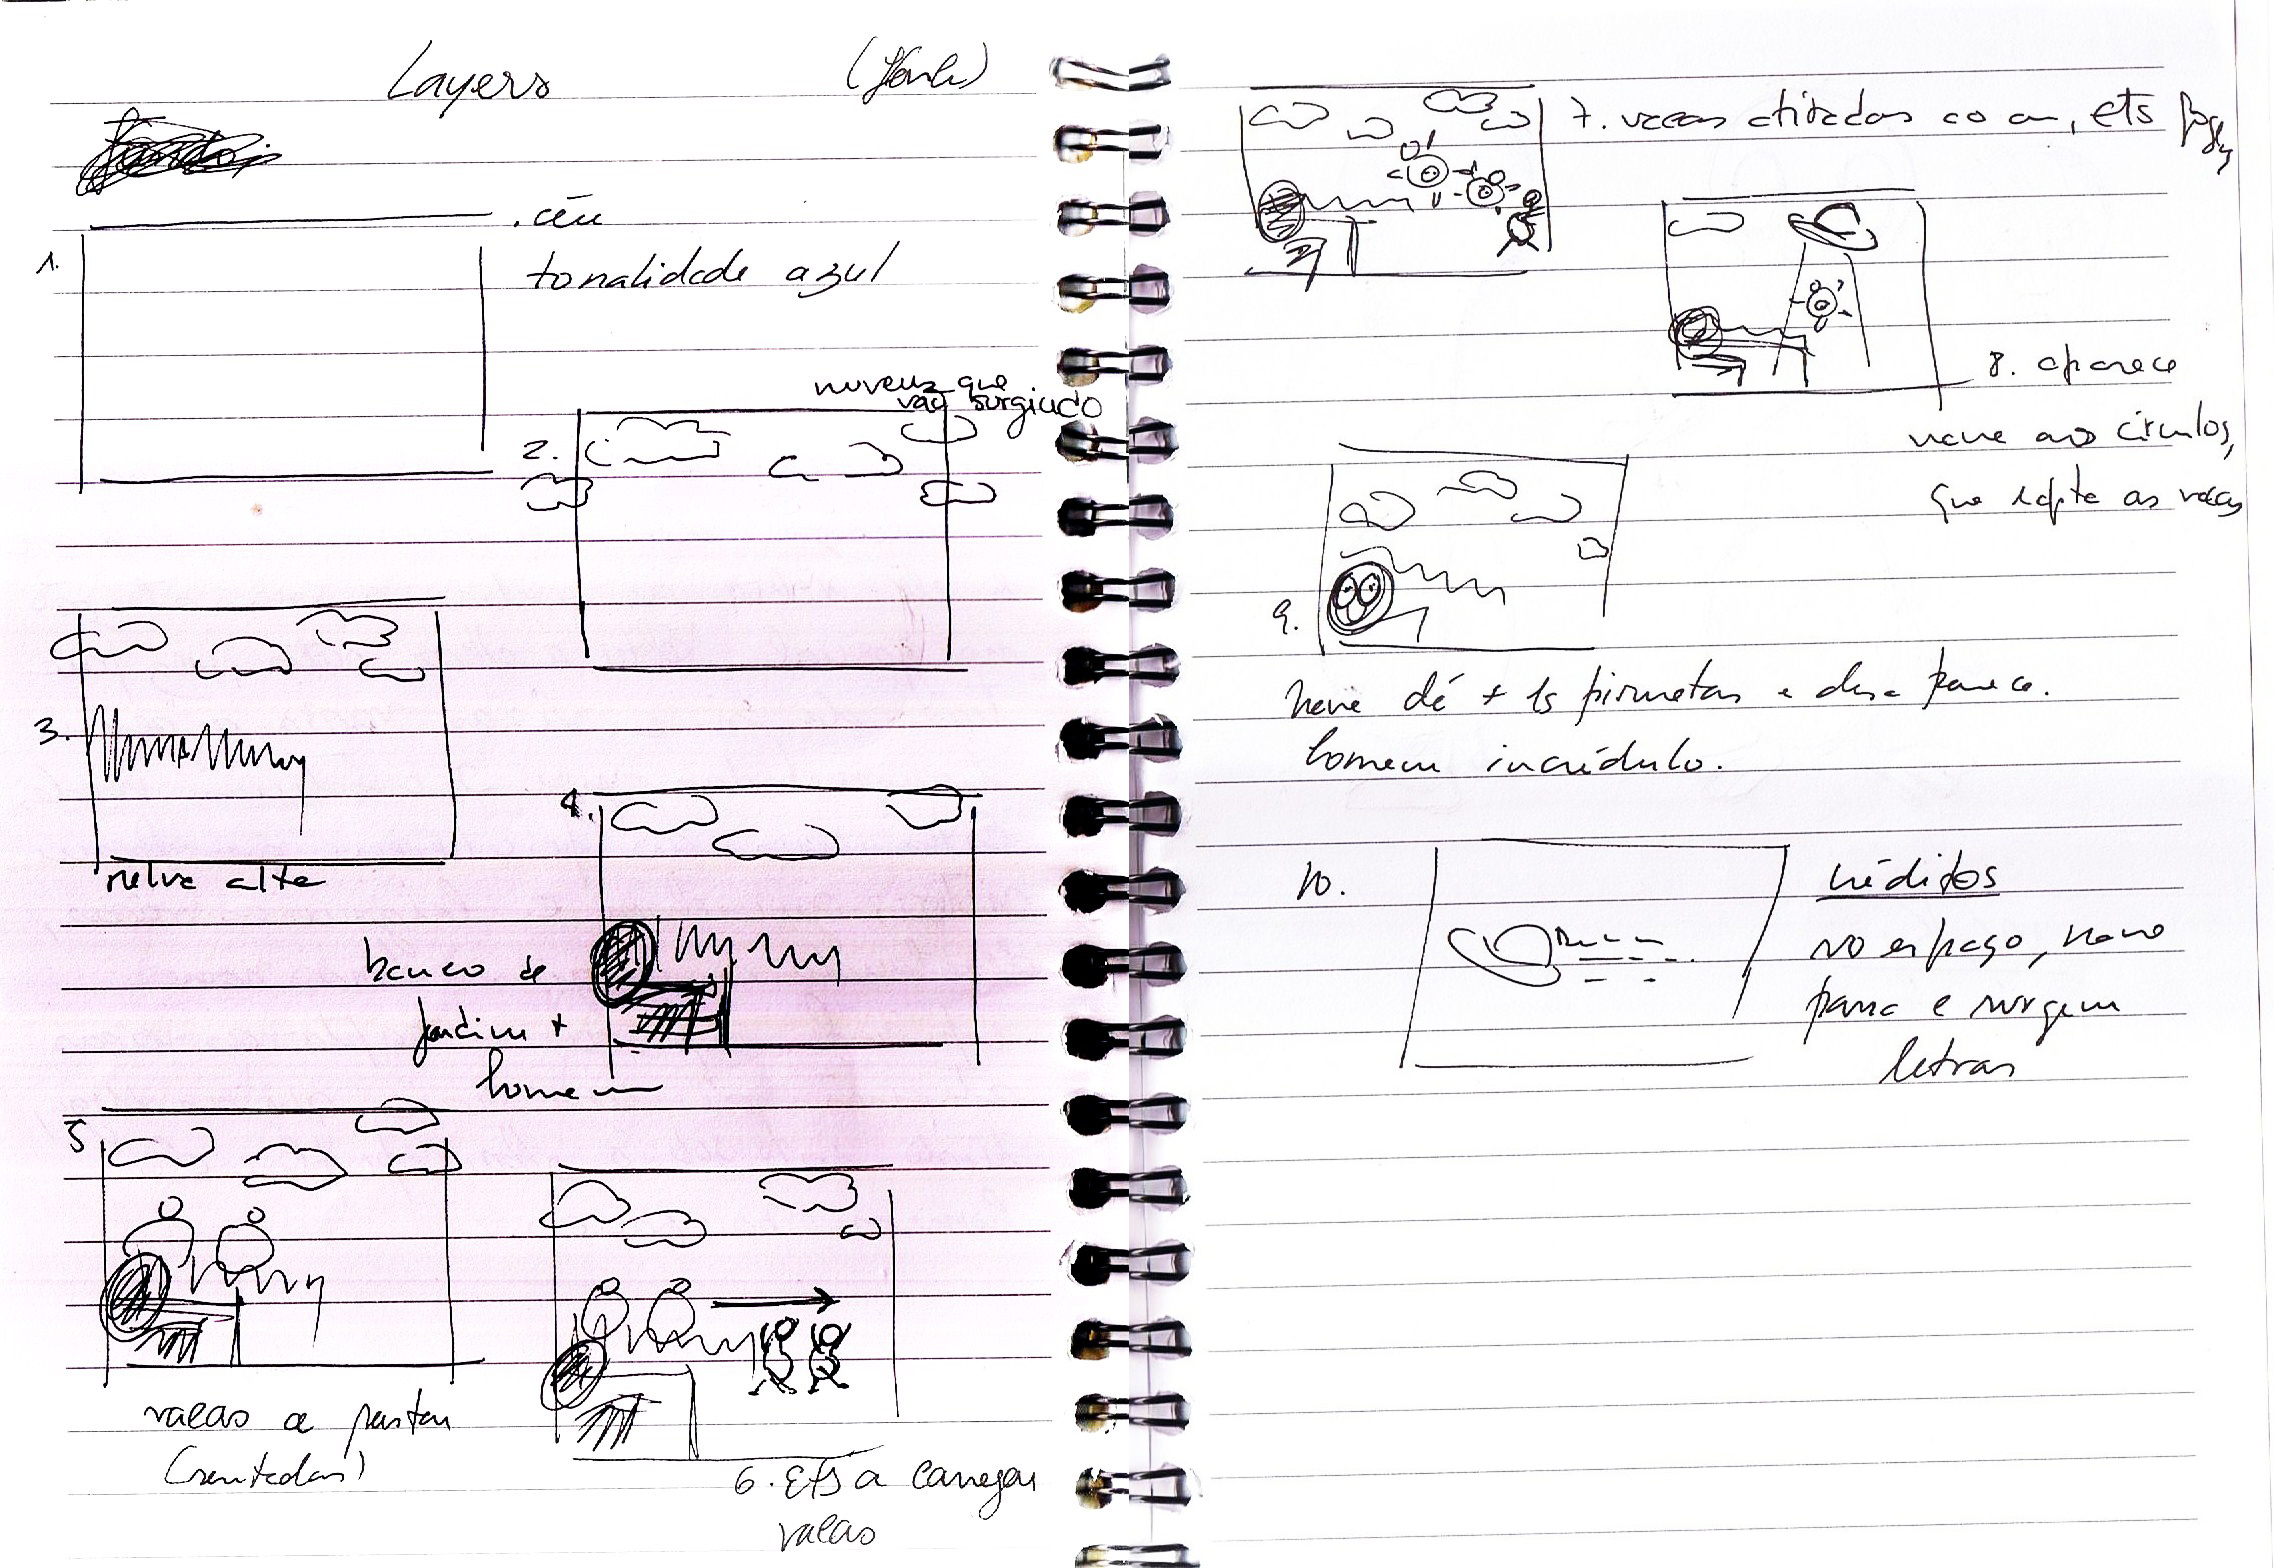 Layers
1.
. céu
tonalidade azul
2.
nuvens que
vão surgindo
3.
relva alta
4.
banco de
jardim +
homem
5
vacas a pastar
(sentadas)
6. Ets a carregar
vacas
7. vacas atiradas ao ar, ets fogem
8. aparece
nave aos círculos,
que rapta as vacas
9.
nave dá + 1s piruetas e desaparece.
homem incrédulo.
10.
créditos
no espaço, nave
para e surgem
letras